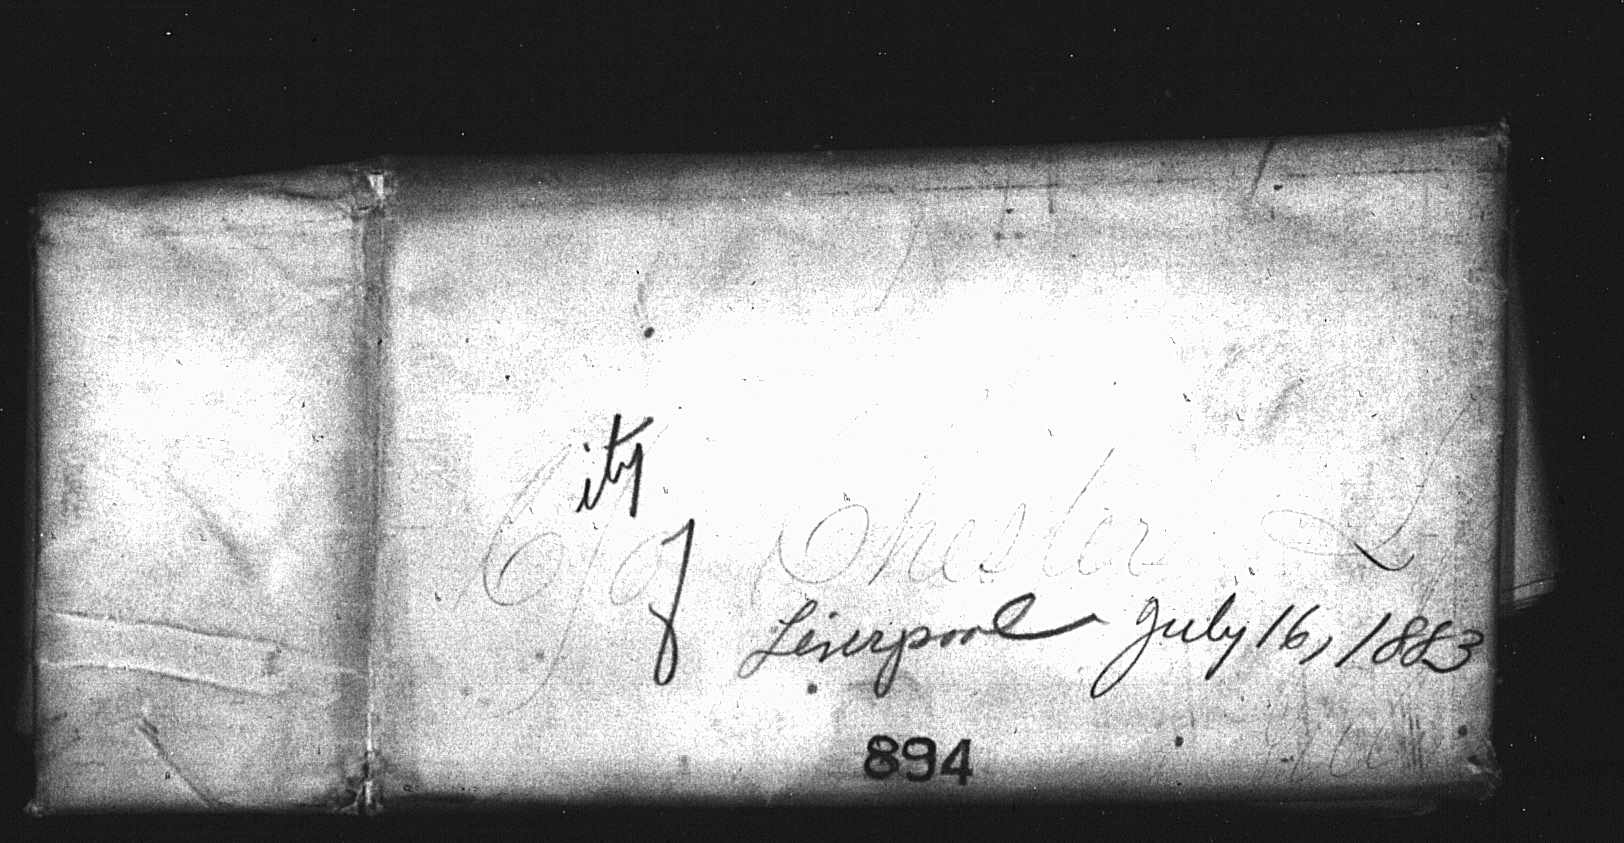 City of Chester
Liverpool July 16, 1883
894